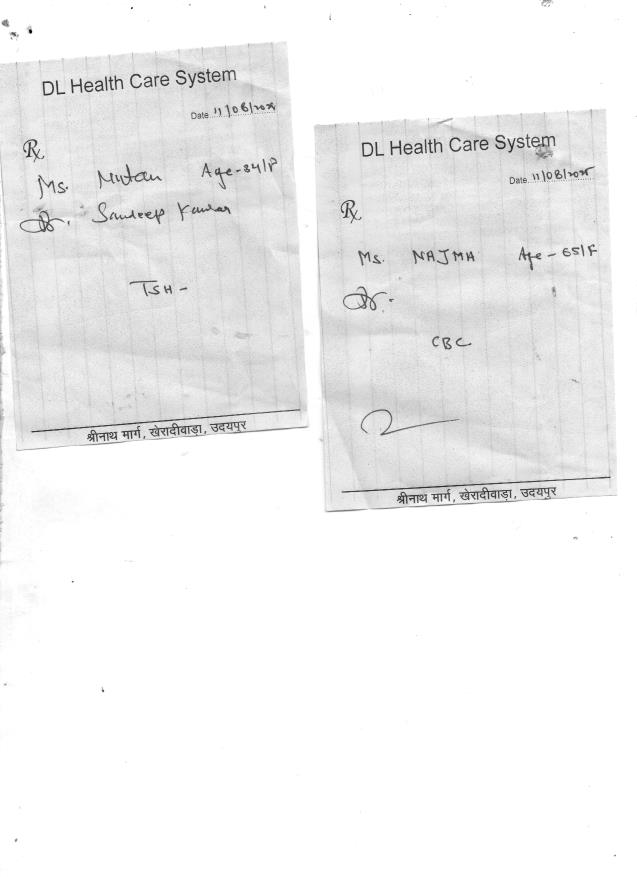 DL Health Care System
Date 11/08/2025
Rx
Ms. Age-34/F
Dr. Sandeep Kumar
TSH -
श्रीनाथ मार्ग, खेरादीवाड़ा, उदयपुर
DL Health Care System
Date. 11/08/2025
Rx
Ms. NAJMA Age - 65/F
Dr. -
CBC
श्रीनाथ मार्ग, खेरादीवाड़ा, उदयपुर